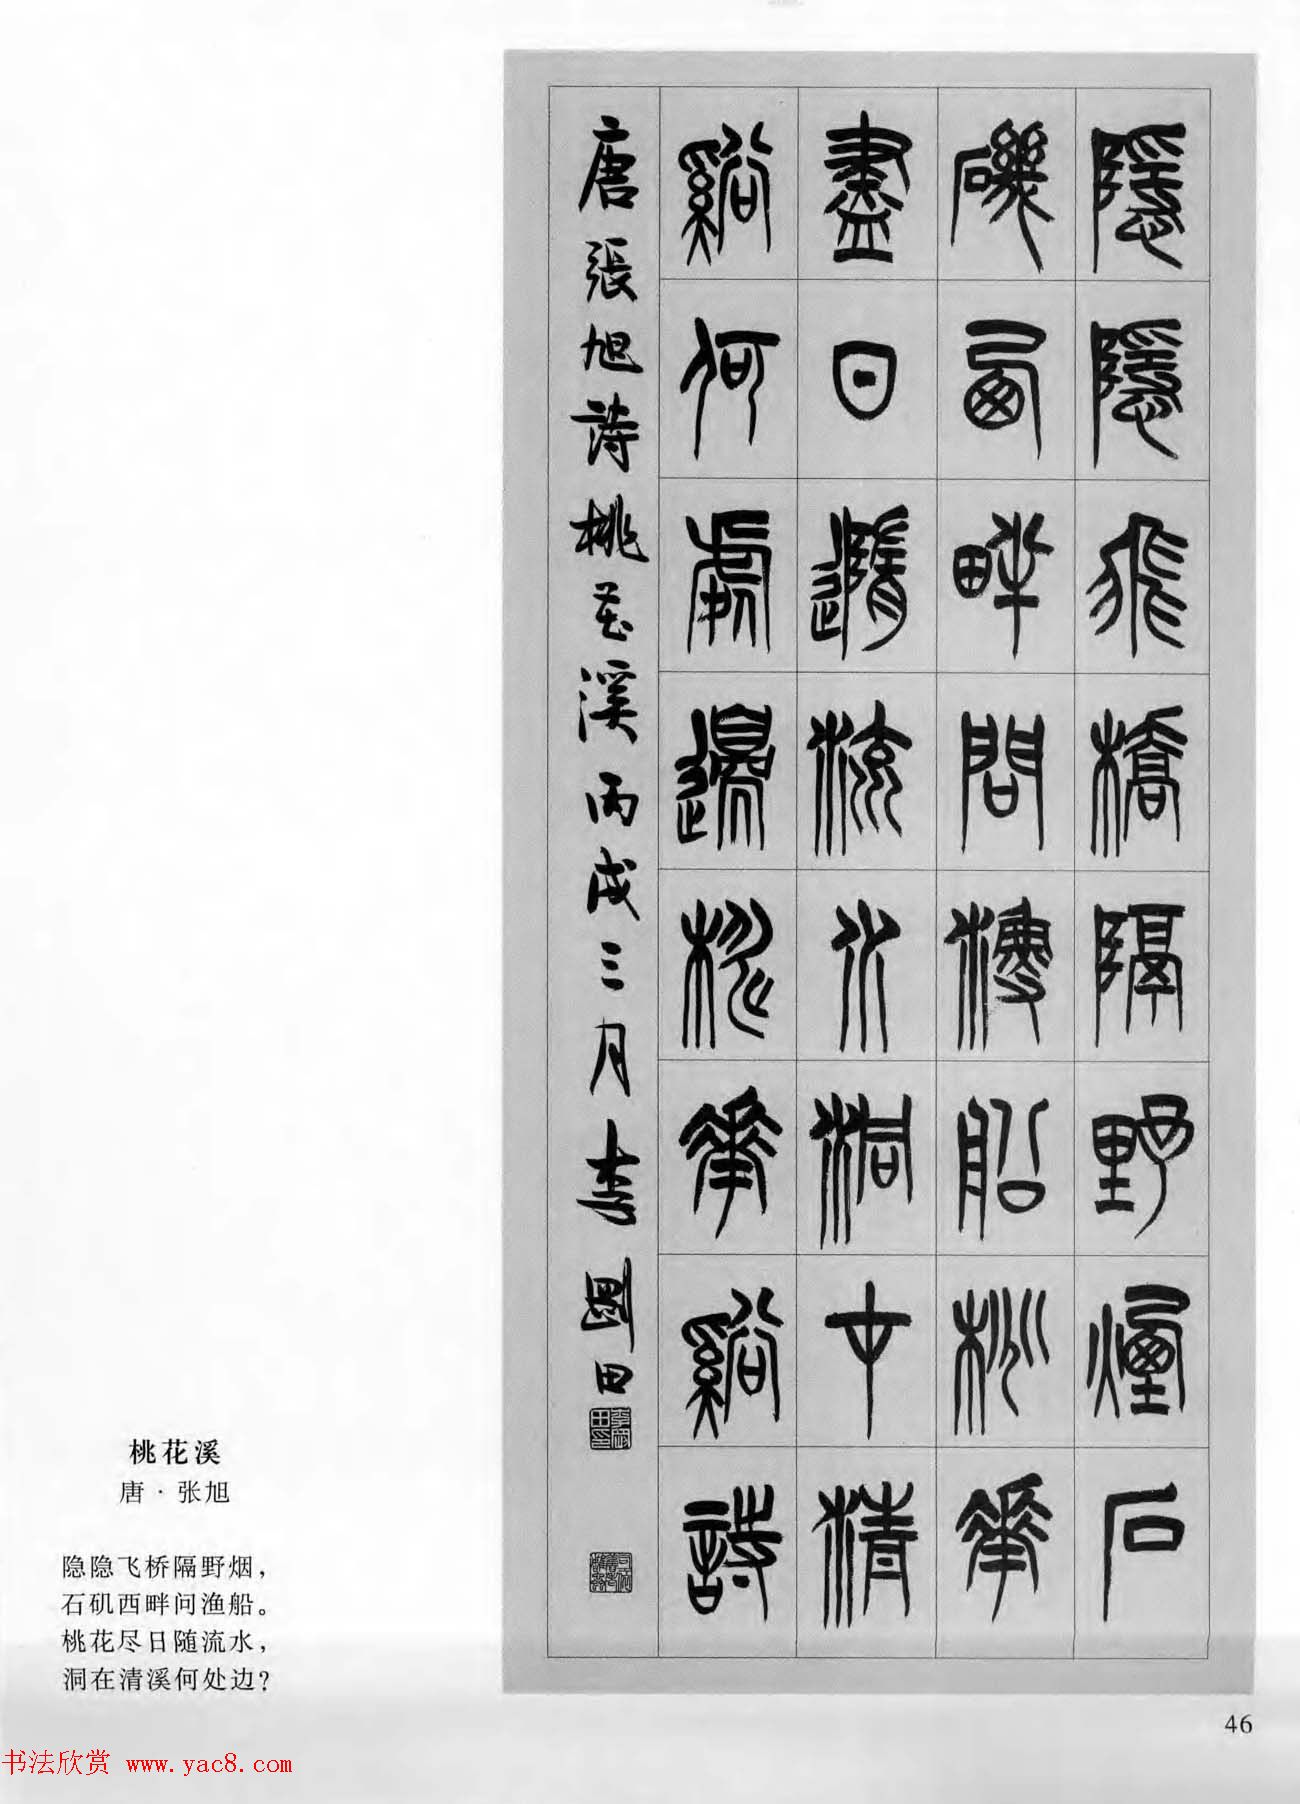 隱隱飛橋隔野煙石
磯西畔問漁船桃華
盡日隨流水洞在清
谿何處邊桃華谿詩
唐張旭詩桃花溪丙戌三月李剛田
李剛田印
桃花溪
唐·张旭
隐隐飞桥隔野烟，
石矶西畔问渔船。
桃花尽日随流水，
洞在清溪何处边？
46
书法欣赏 www.yac8.com